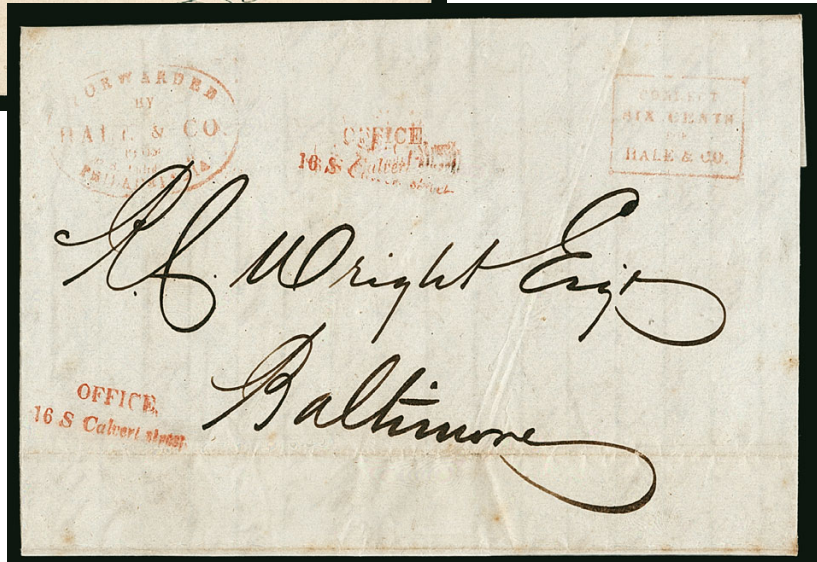 FORWARDED
BY
HALE & CO.
FROM
PHILADELPHIA
OFFICE,
16 S Calvert street
COLLECT
SIX CENTS
FOR
HALE & CO.
R. C. Wright Esqr
Baltimore
OFFICE,
16 S Calvert street